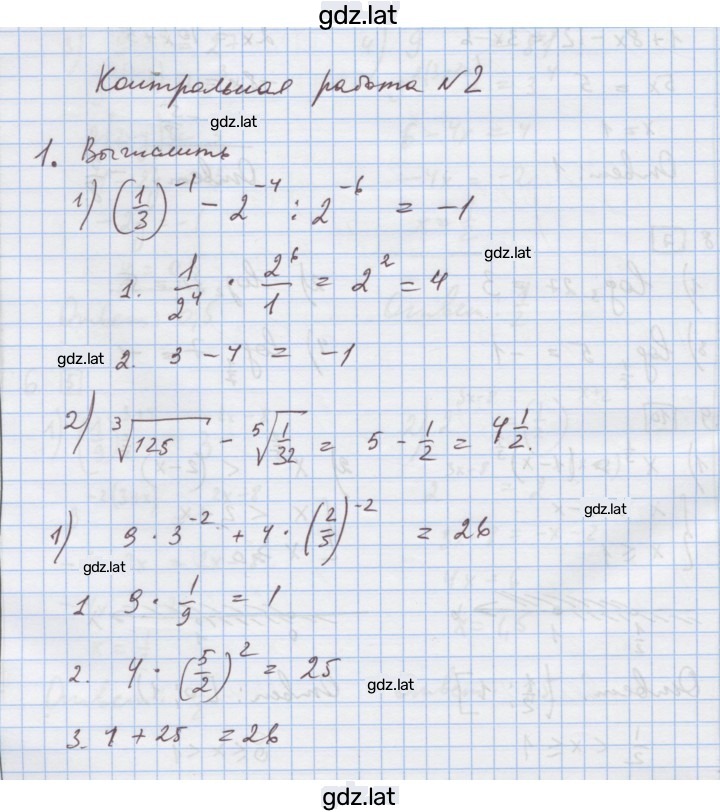 gdz.lat
Контрольная работа №2
gdz.lat
1. Вычислить
1) (1/3)^-1 - 2^-4 : 2^-6 = -1
gdz.lat
1. 1/2^4 · 2^6/1 = 2^2 = 4
gdz.lat
2. 3 - 4 = -1
2) ³√125 - ⁵√(1/32) = 5 - 1/2 = 4 1/2.
gdz.lat
1) 9 · 3^-2 + 4 · (2/5)^-2 = 26
gdz.lat
1 9 · 1/9 = 1
2. 4 · (5/2)^2 = 25
gdz.lat
3. 1 + 25 = 26
gdz.lat